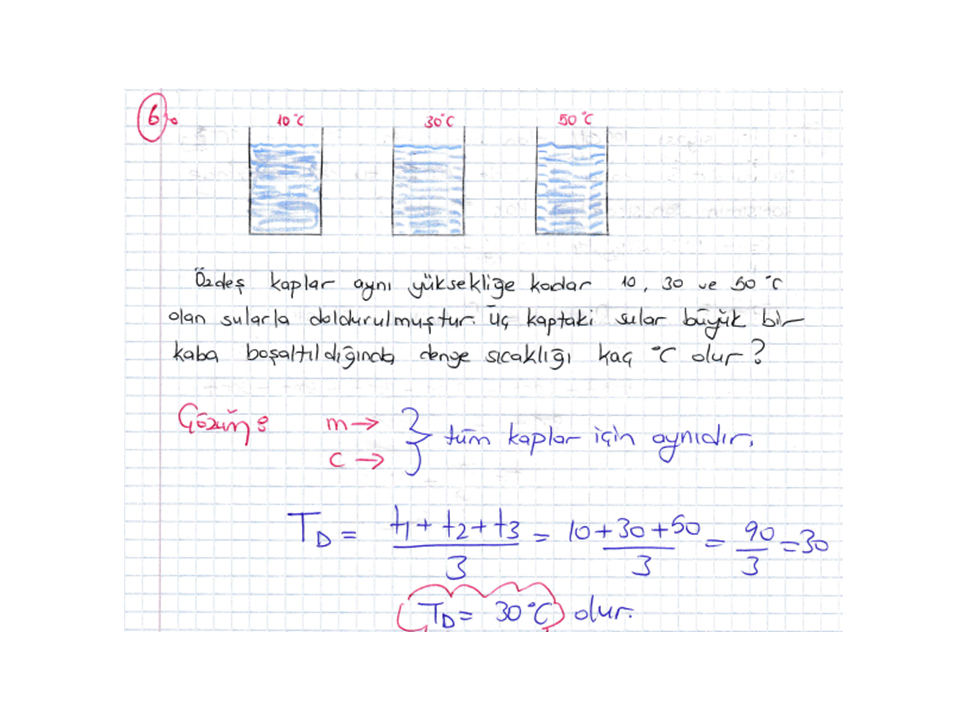 6.
10°C 30°C 50°C
Özdeş kaplar aynı yüksekliğe kadar 10, 30 ve 50 °C
olan sularla doldurulmuştur. Üç kaptaki sular büyük bir
kaba boşaltıldığında denge sıcaklığı kaç °C olur?
Çözüm: m→
c → } tüm kaplar için aynıdır.
T_D = (t1 + t2 + t3)/3 = (10+30+50)/3 = 90/3 = 30
(T_D = 30°C) olur.